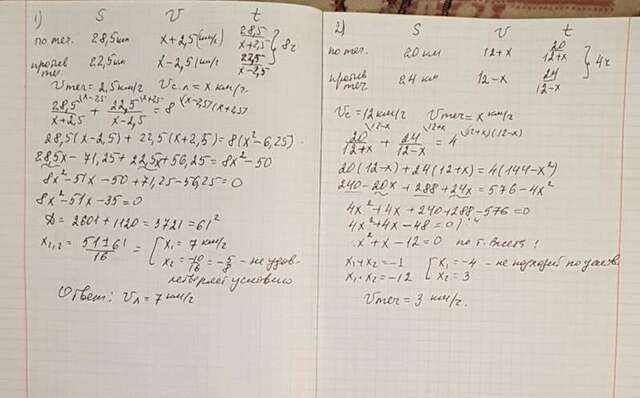 1) S V t
по теч. 28,5 км x+2,5 (км/ч) 28,5/x+2,5
против теч. 22,5 км x-2,5 (км/ч 22,5/x-2,5 } 8ч
Vтеч = 2,5 км/ч Vс.л = x км/ч.
28,5/x+2,5 + 22,5/x-2,5 = 8
28,5(x-2,5) + 22,5(x+2,5) = 8(x²-6,25)
28,5x - 71,25 + 22,5x + 56,25 = 8x² - 50
8x² - 51x - 50 + 71,25 - 56,25 = 0
8x² - 51x - 35 = 0
D = 2601 + 1120 = 3721 = 61²
x1,2 = 51±61/16 = [ x1 = 7 км/ч
x2 = -10/16 = -5/8 - не удов-
летворяет условию
Ответ: Vл = 7 км/ч
2) S V t
по теч. 20 км 12+x 20/12+x
против теч 24 км 12-x 24/12-x } 4ч
Vc = 12 км/ч Vтеч = x км/ч
20/12+x + 24/12-x = 4
20(12-x) + 24(12+x) = 4(144-x²)
240 - 20x + 288 + 24x = 576 - 4x²
4x² + 4x + 240 + 288 - 576 = 0
4x² + 4x - 48 = 0
x² + x - 12 = 0 по т. Виета!
x1 + x2 = -1 [ x1 = -4 - не подходит по услов.
x1 · x2 = -12 x2 = 3
Vтеч = 3 км/ч.